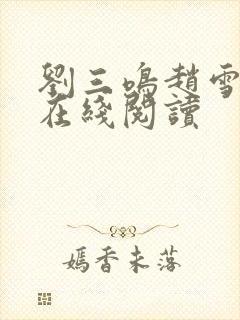 劉三鳴趙雪
在綫閱讀
媽香未落